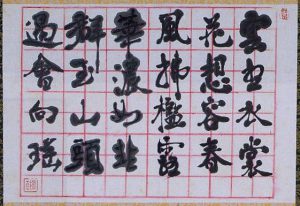 雲想衣裳
花想容春
風拂檻露
華濃如非
群玉山頭
過會向瑤